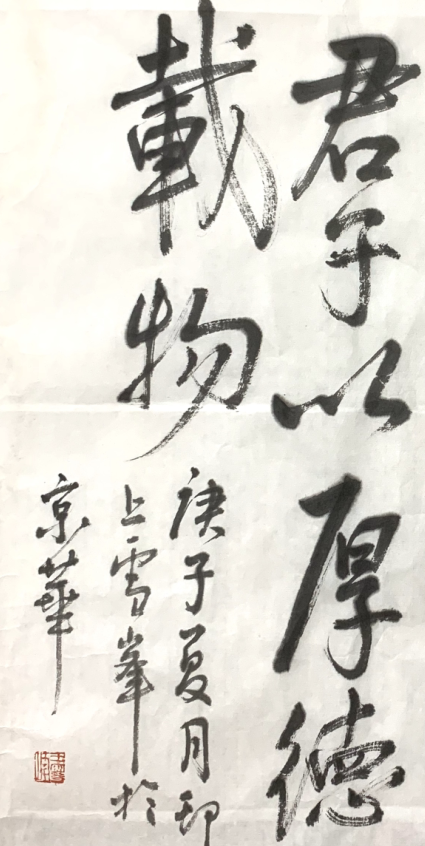 君子以厚德
載物
庚子夏月卯
上雪峯於
京華